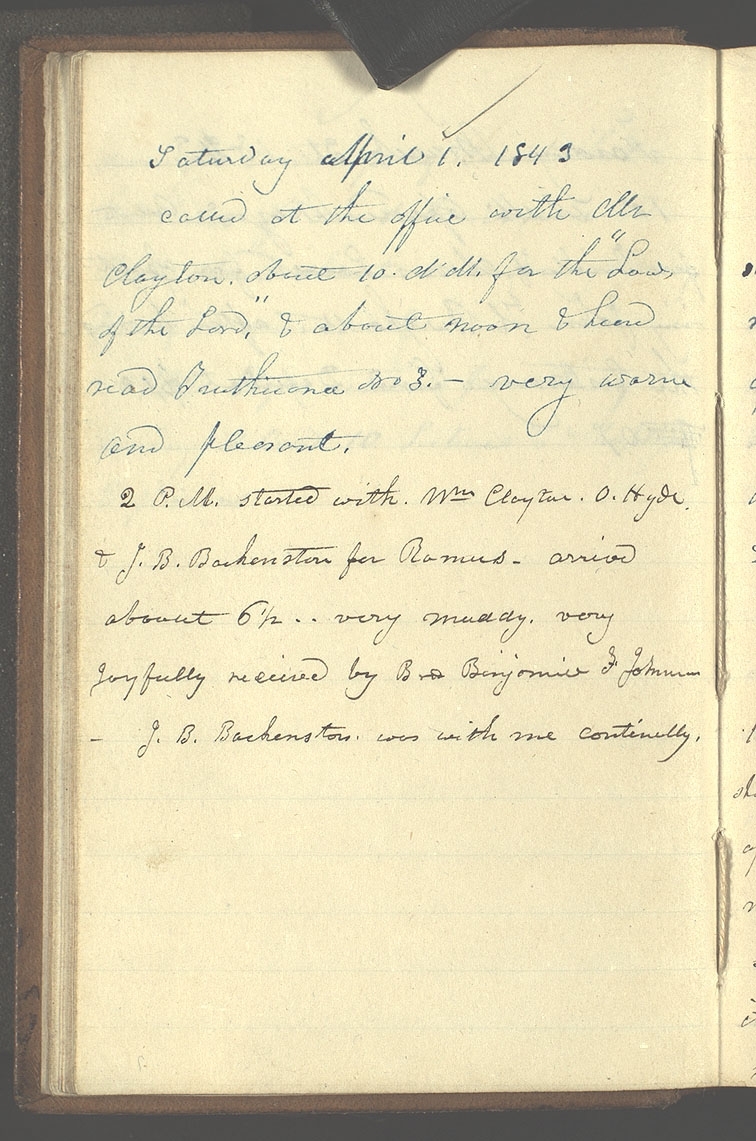 Saturday April 1. 1843
called at the office with Mr
Clayton. about 10. A M. for the "Law
of the Lord," & about noon & heard
read Truthiana No 3. – very warm
and pleasant.
2 P.M. started with. Wm Clayton. O. Hyde.
& J. B. Backenston for Ramus – arrived
aboout 6 1/2 .. very muddy. very
Joyfully received by Bro Benjamin F Johnson
– J. B. Backenston. was with me continually.